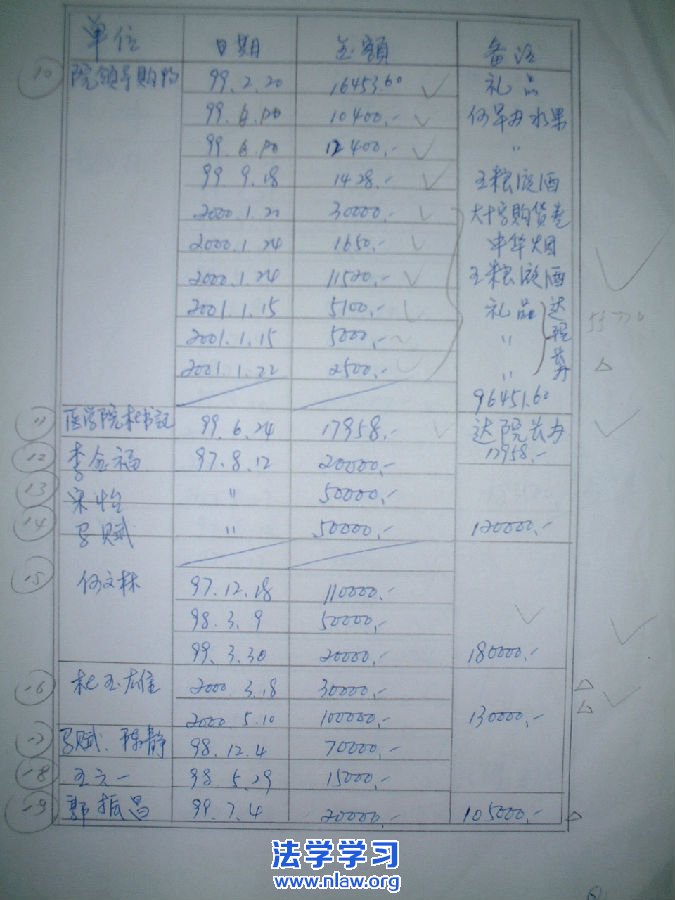 单位 日期 金额 备注
10 院领导购物 99.2.20 16453.60 礼品
99.6. 10400.- 何早丹水果
99.6. 12400.- 〃
99 9.18 1428.- 五粮液酒
2000.1.21 30000.- 大十字购货卷
2000.1.24 1650.- 中华烟
2000.1.24 11520.- 五粮液酒
2001.1.15 5100.- 礼品 达
2001.1.15 5000.- 〃
2001.1.22 2500.- 〃
96451.60
11 医学院 书记 99.6.24 17958.- 达院长办
17958.-
12 李金福 97.8.12 20000.-
13 宋怡 〃 50000.-
14 马赋 〃 50000.- 120000.-
15 何文林 97.12.18 110000.-
98.3.9 50000.-
99.3.30 20000.- 180000.-
16 杜玉雄 2000 3.18 30000.-
2000.5.10 100000.- 130000.-
17 马赋、陈静 98.12.4 70000.-
18 王立一 98.5.29 15000.-
19 郭振昌 99.7.4 20000.- 105000.-
法学学习
www.nlaw.org